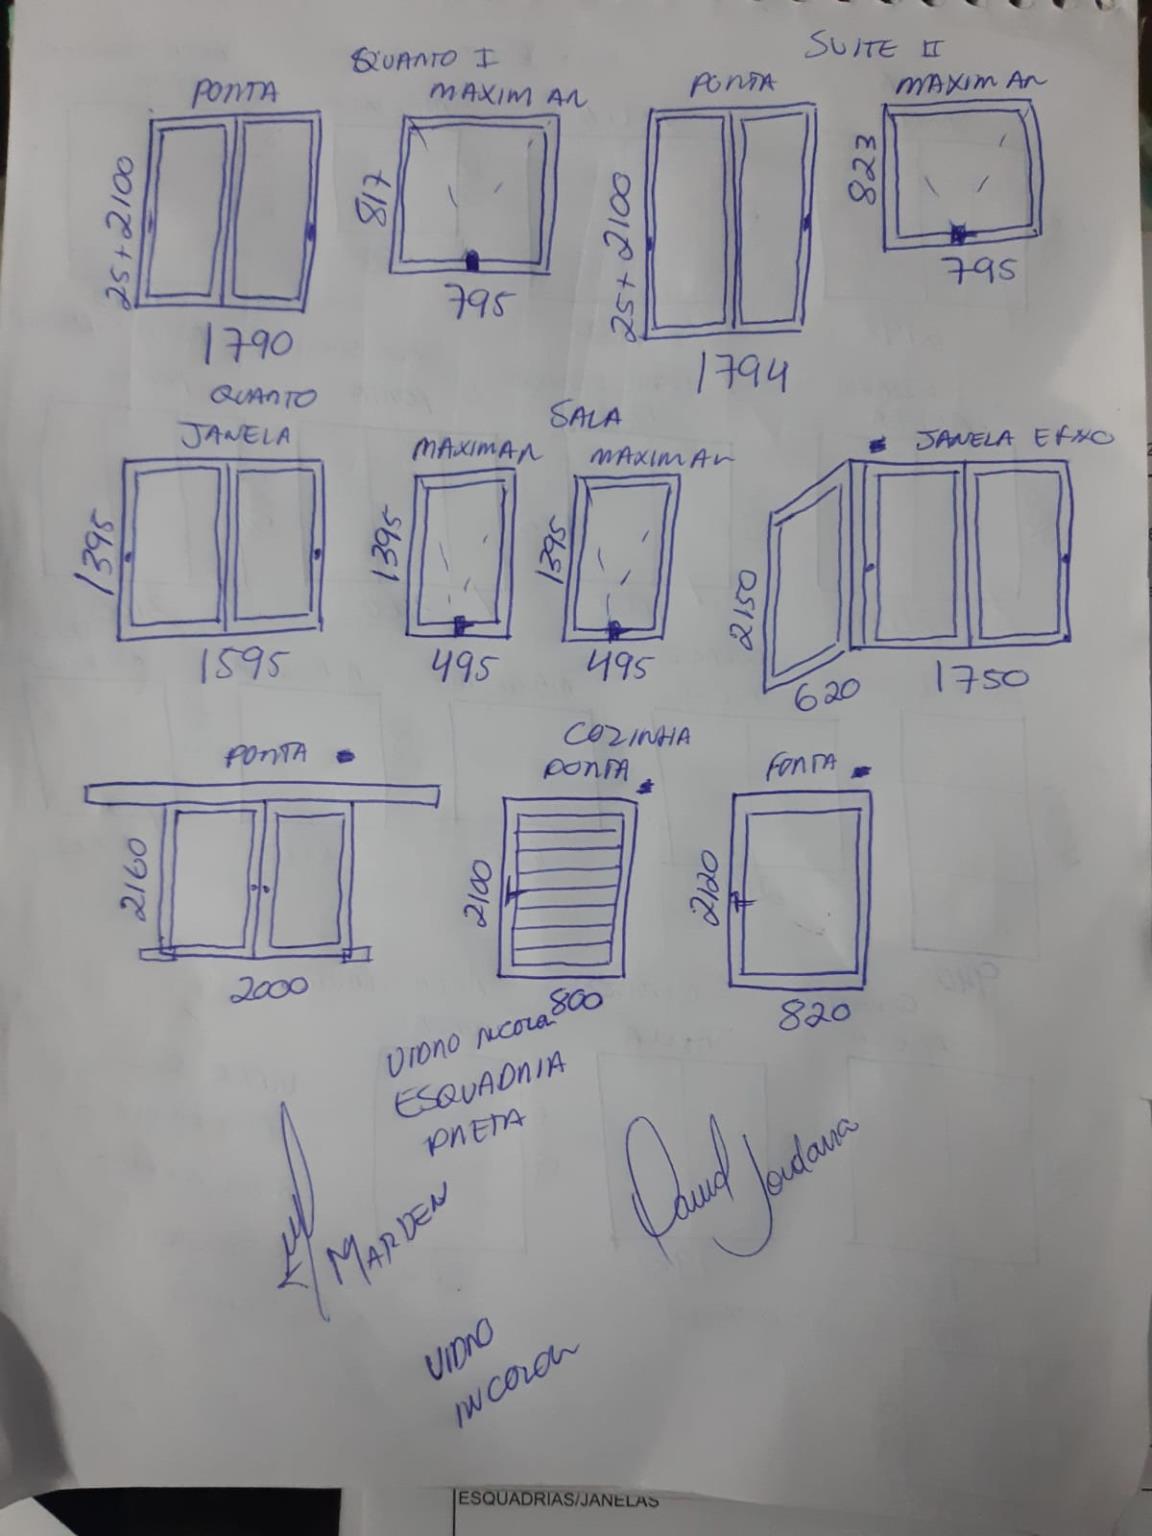 QUARTO I
SUITE II
PORTA
MAXIM AR
PORTA
MAXIM AR
25+2100
817
25+2100
823
1790
795
1794
795
QUARTO
JANELA
SALA
MAXIMAR
MAXIMAR
JANELA E FIXO
1395
1395
1395
2150
1595
495
495
620
1750
PORTA
COZINHA
PORTA
PORTA
2160
2100
2120
2000
800
820
VIDRO INCOLOR
ESQUADRIA
PRETA
MARDEN
David Jordana
VIDRO
INCOLOR
ESQUADRIAS/JANELAS